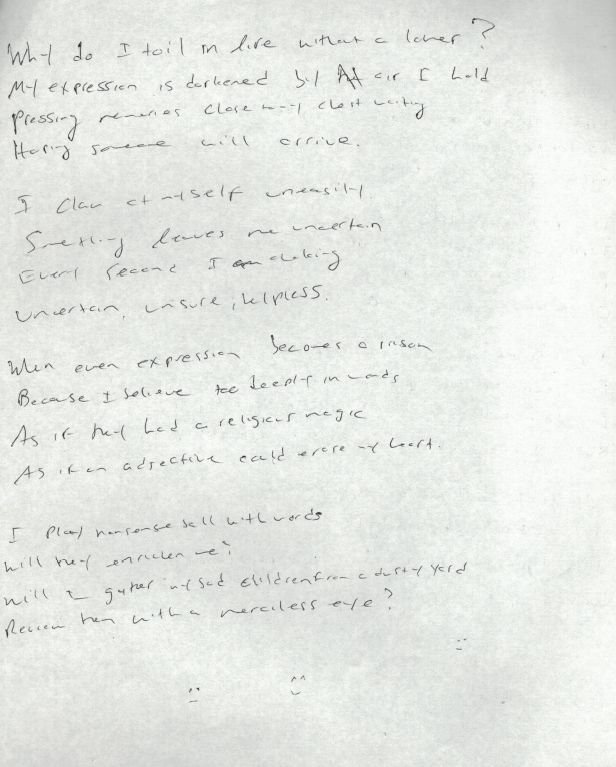 Why do I toil in live without a lover?
My expression is darkened by air I hold
Pressing memories close to my chest waiting
Hoping someone will arrive.
I claw at myself uneasily
Something leaves me uncertain
Every second I choking
Uncertain, unsure, helpless.
When even expression becomes a prison
Because I believe too deeply in words
As if they had a religious magic
As if an adjective could erase my heart.
I play nonsense ball with words
Will they enrichen me?
Will I gather my sad children from a dusty yard
Review them with a merciless eye?